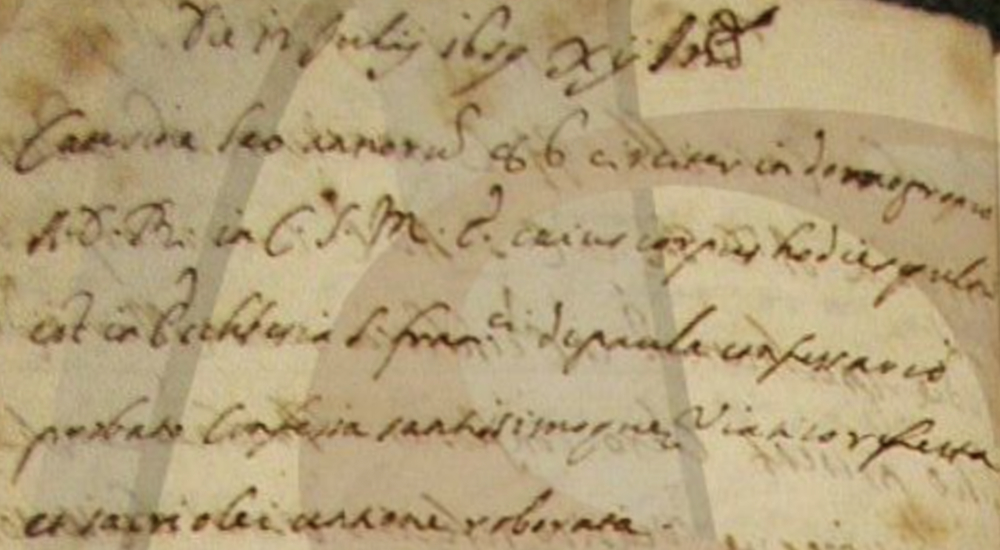 Die 11 Julij 1659 Xij Ind
Catarina leo annorũ 86 circiter in domo propria
A.D.R. in C. S. M. E. cuius corpus hodie sepultu
est in Ecclesia S. Fran.ci de paula confessario
probato Confessa santissimoque Viatico refecta
et sacri olei unione roborata.